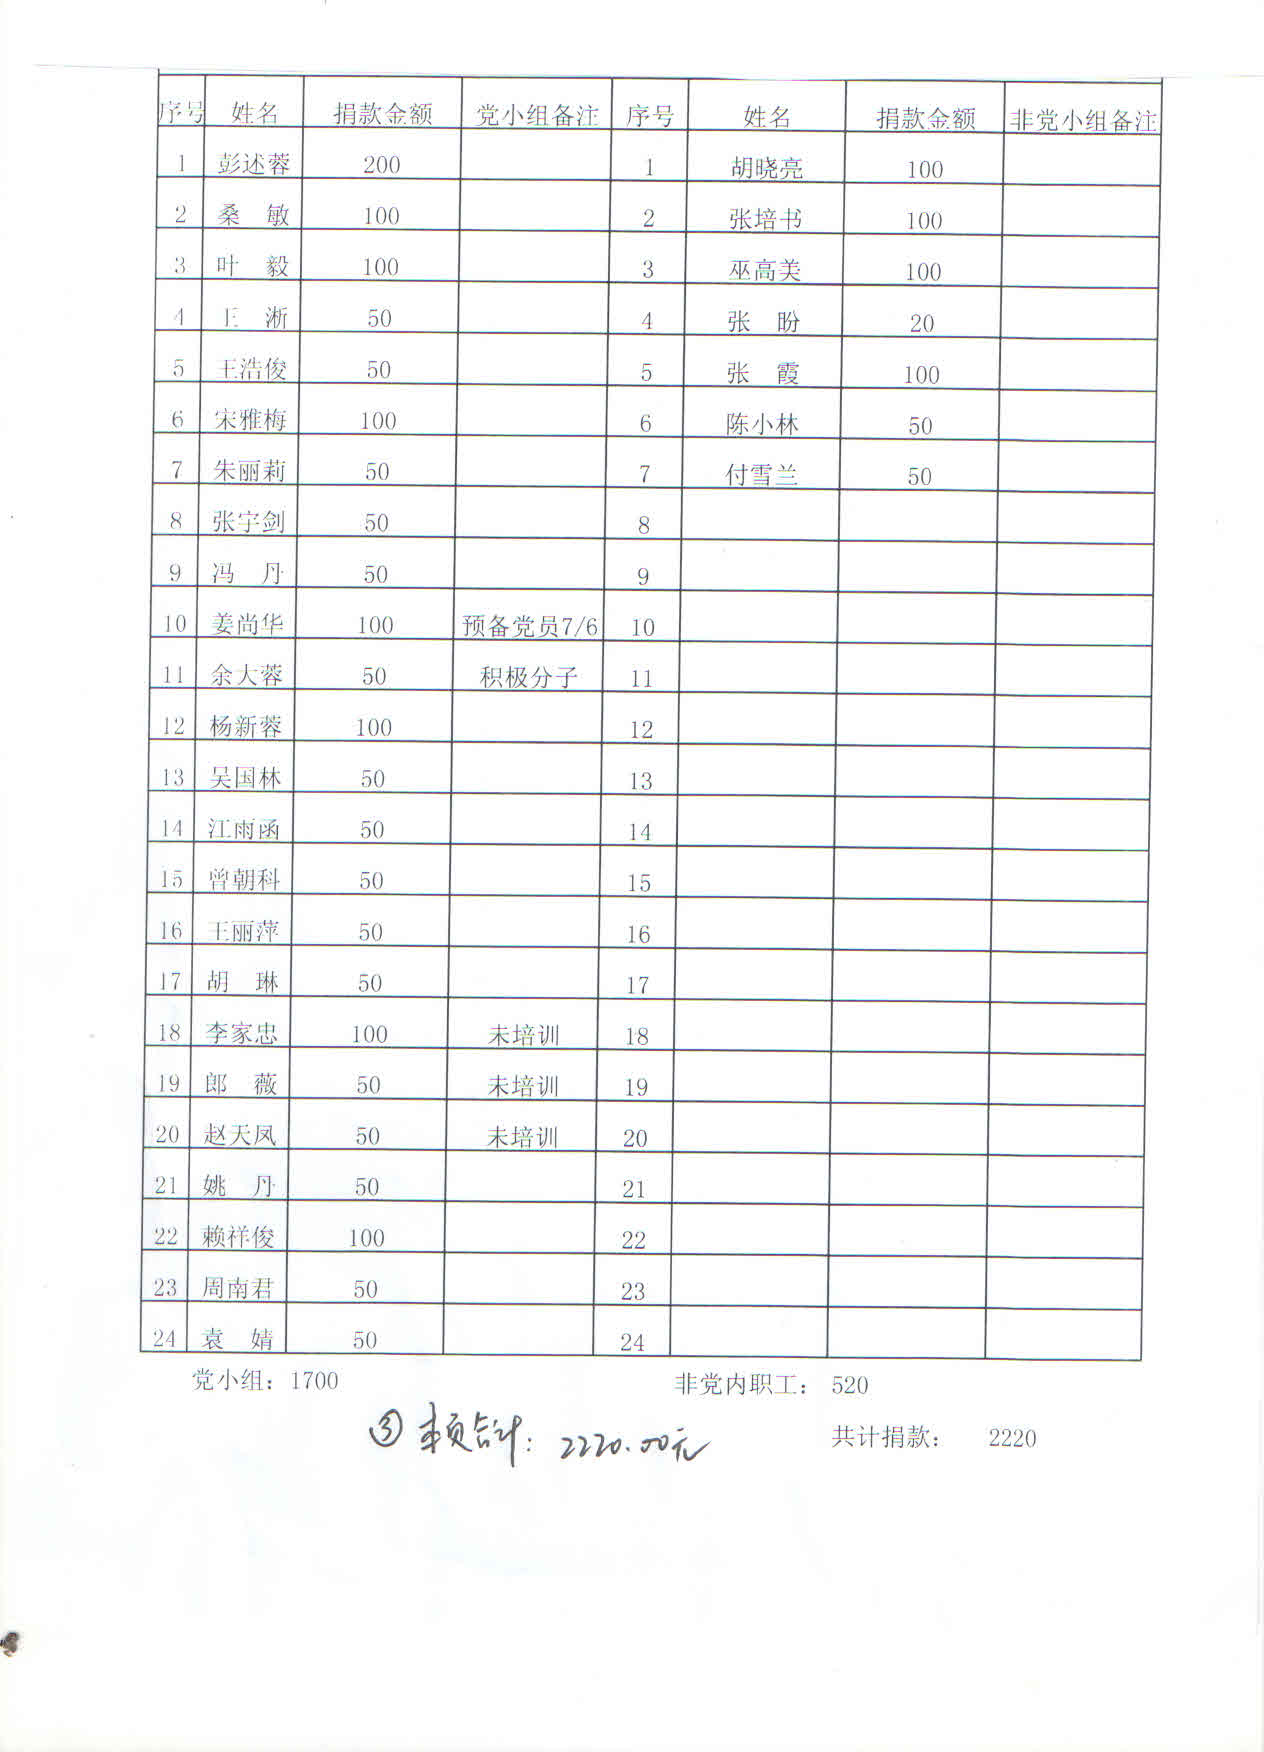 序号 姓名 捐款金额 党小组备注 序号 姓名 捐款金额 非党小组备注
1 彭述蓉 200 1 胡晓亮 100
2 桑 敏 100 2 张培书 100
3 叶 毅 100 3 巫高美 100
4 王 淅 50 4 张 盼 20
5 王浩俊 50 5 张 霞 100
6 宋雅梅 100 6 陈小林 50
7 朱丽莉 50 7 付雪兰 50
8 张宇剑 50 8
9 冯 丹 50 9
10 姜尚华 100 预备党员7/6 10
11 余大蓉 50 积极分子 11
12 杨新蓉 100 12
13 吴国林 50 13
14 江雨函 50 14
15 曾朝科 50 15
16 王丽萍 50 16
17 胡 琳 50 17
18 李家忠 100 未培训 18
19 郎 薇 50 未培训 19
20 赵天凤 50 未培训 20
21 姚 丹 50 21
22 赖祥俊 100 22
23 周南君 50 23
24 袁 婧 50 24
党小组：1700 非党内职工： 520
③ 本页合计：2220.00元 共计捐款： 2220